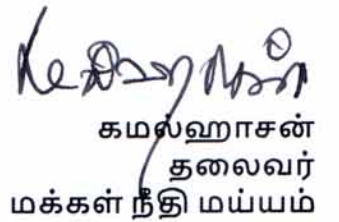 கமல்ஹாசன்
தலைவர்
மக்கள் நீதி மய்யம்